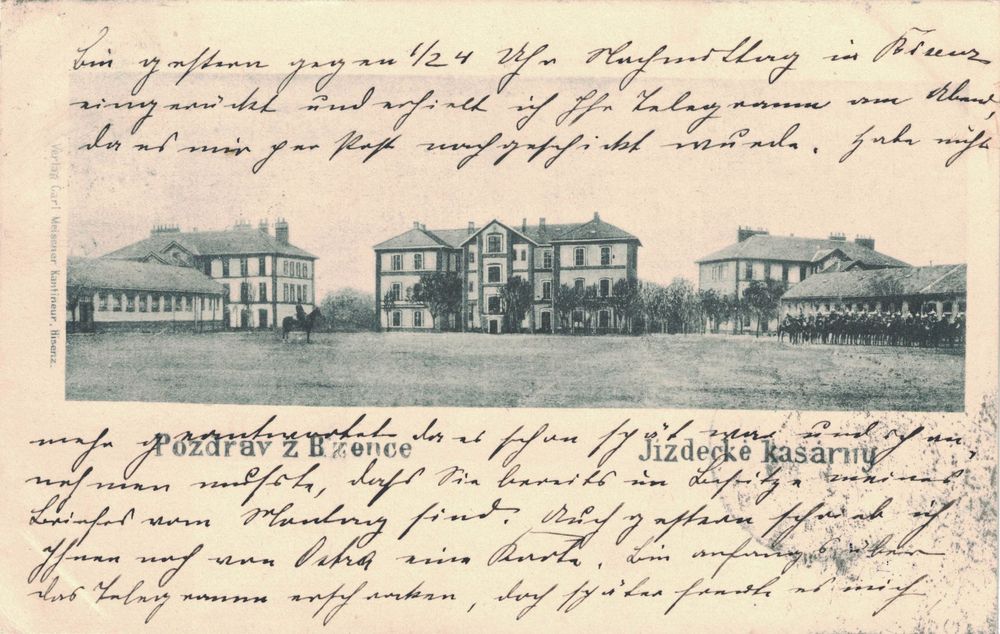 Bin gestern gegen 1/2 4 Uhr Nachmittag in Bisenz
eingerückt und erhielt ich Ihr Telegramm am Abend,
da es mir per Post nachgeschickt wurde. Habe nicht
Verlag Carl Meisener Kantineur, Bisenz.
mehr geantwortet da es schon spät war und ich an
Pozdrav z Bzence
Jízdecké kasárny
nehmen musste, dafs Sie bereits im Besitze meines
Briefes vom Montag sind. Auch gestern schrieb ich
Ihnen noch von Ostra eine Karte. Bin anfangs über
das Telegramm erschrocken, doch später freute es mich